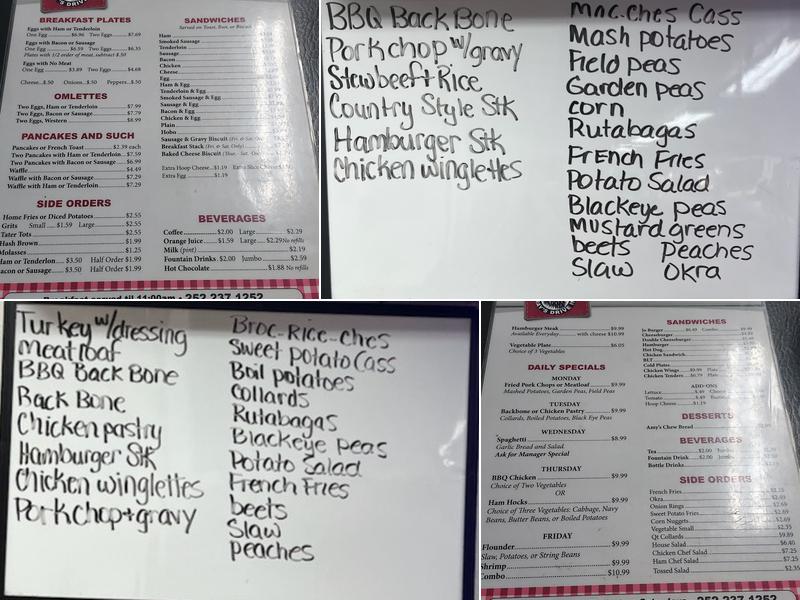 BREAKFAST PLATES
Eggs with Ham or Tenderloin
One Egg $6.96 Two Eggs $7.69
Eggs with Bacon or Sausage
One Egg $6.59 Two Eggs $6.35
Plates with 1/2 order of meat, subtract $.50
Eggs with No Meat
One Egg $3.89 Two Eggs $4.68
Cheese..$.50 Onions..$.50 Peppers..$.50
OMLETTES
Two Eggs, Ham or Tenderloin $7.99
Two Eggs, Bacon or Sausage $7.79
Two Eggs, Western $8.99
PANCAKES AND SUCH
Pancakes or French Toast $2.39 each
Two Pancakes with Ham or Tenderloin $7.59
Two Pancakes with Bacon or Sausage $6.99
Waffle $4.49
Waffle with Bacon or Sausage $7.29
Waffle with Ham or Tenderloin $7.29
SIDE ORDERS
Home Fries or Diced Potatoes $2.55
Grits Small $1.59 Large $2.55
Tater Tots $2.55
Hash Brown $1.99
Molasses $1.25
Ham or Tenderloin $3.50 Half Order $1.99
Bacon or Sausage $3.50 Half Order $1.99
SANDWICHES
Served on Toast, Bun, or Biscuit
Ham
Smoked Sausage
Tenderloin
Sausage
Bacon
Chicken
Cheese
Egg
Ham & Egg
Tenderloin & Egg
Smoked Sausage & Egg
Sausage & Egg
Bacon & Egg
Chicken & Egg
Plain
Hobo
Sausage & Gravy Biscuit
Breakfast Stack (Fri. & Sat. Only)
Baked Cheese Biscuit
Extra Hoop Cheese $1.19 Extra Slice Cheese
Extra Egg $1.19
BEVERAGES
Coffee $2.00 Large $2.29
Orange Juice $1.59 Large $2.29 No refills
Milk (pint) $2.19
Fountain Drinks $2.00 Jumbo $2.59
Hot Chocolate $1.88 No refills
Breakfast served til 11:00am • 252 237 1252
BBQ Back Bone
Porkchop w/gravy
Stewbeef+Rice
Country Style Stk
Hamburger Stk
Chicken winglettes
Mac.ches Cass
Mash potatoes
Field peas
Garden peas
corn
Rutabagas
French Fries
Potato Salad
Blackeye peas
Mustard greens
beets Peaches
Slaw Okra
Turkey w/dressing
Meatloaf
BBQ Back Bone
Back Bone
Chicken pastry
Hamburger Stk
Chicken winglettes
Porkchop+gravy
Broc-Rice-ches
Sweet potato Cass
Boil potatoes
Collards
Rutabagas
Blackeye peas
Potato Salad
French Fries
beets
Slaw
peaches
Hamburger Steak $9.99
Available Everyday with cheese $10.99
Vegetable Plate $6.05
Choice of 3 Vegetables
DAILY SPECIALS
MONDAY
Fried Pork Chops or Meatloaf $9.99
Mashed Potatoes, Garden Peas, Field Peas
TUESDAY
Backbone or Chicken Pastry $9.99
Collards, Boiled Potatoes, Black Eye Peas
WEDNESDAY
Spaghetti $8.99
Garlic Bread and Salad
Ask for Manager Special
THURSDAY
BBQ Chicken $9.99
Choice of Two Vegetables
OR
Ham Hocks $9.99
Choice of Three Vegetables: Cabbage, Navy
Beans, Butter Beans, or Boiled Potatoes
FRIDAY
Flounder $9.99
Slaw, Potatoes, or String Beans
Shrimp $9.99
Combo $10.99
SANDWICHES
Jo Burger $6.49 Combo
Cheeseburger
Double Cheeseburger
Hamburger
Hot Dog
Chicken Sandwich
BLT
Cold Plates
Chicken Wings $9.99 Plate
Chicken Tenders $6.79 Plate
ADD-ONS
Lettuce $.49
Tomato $.49
Hoop Cheese $1.19
DESSERTS
Amy's Chew Bread
BEVERAGES
Tea $2.00 Jumbo
Fountain Drink $2.00 Jumbo
Bottle Drinks
SIDE ORDERS
French Fries
Okra $2.69
Onion Rings $2.69
Sweet Potato Fries $2.69
Corn Nuggets $2.69
Vegetable Small $2.35
Qt Collards $9.89
House Salad $6.40
Chicken Chef Salad $7.25
Ham Chef Salad $7.25
Tossed Salad $2.35
252 237 1252